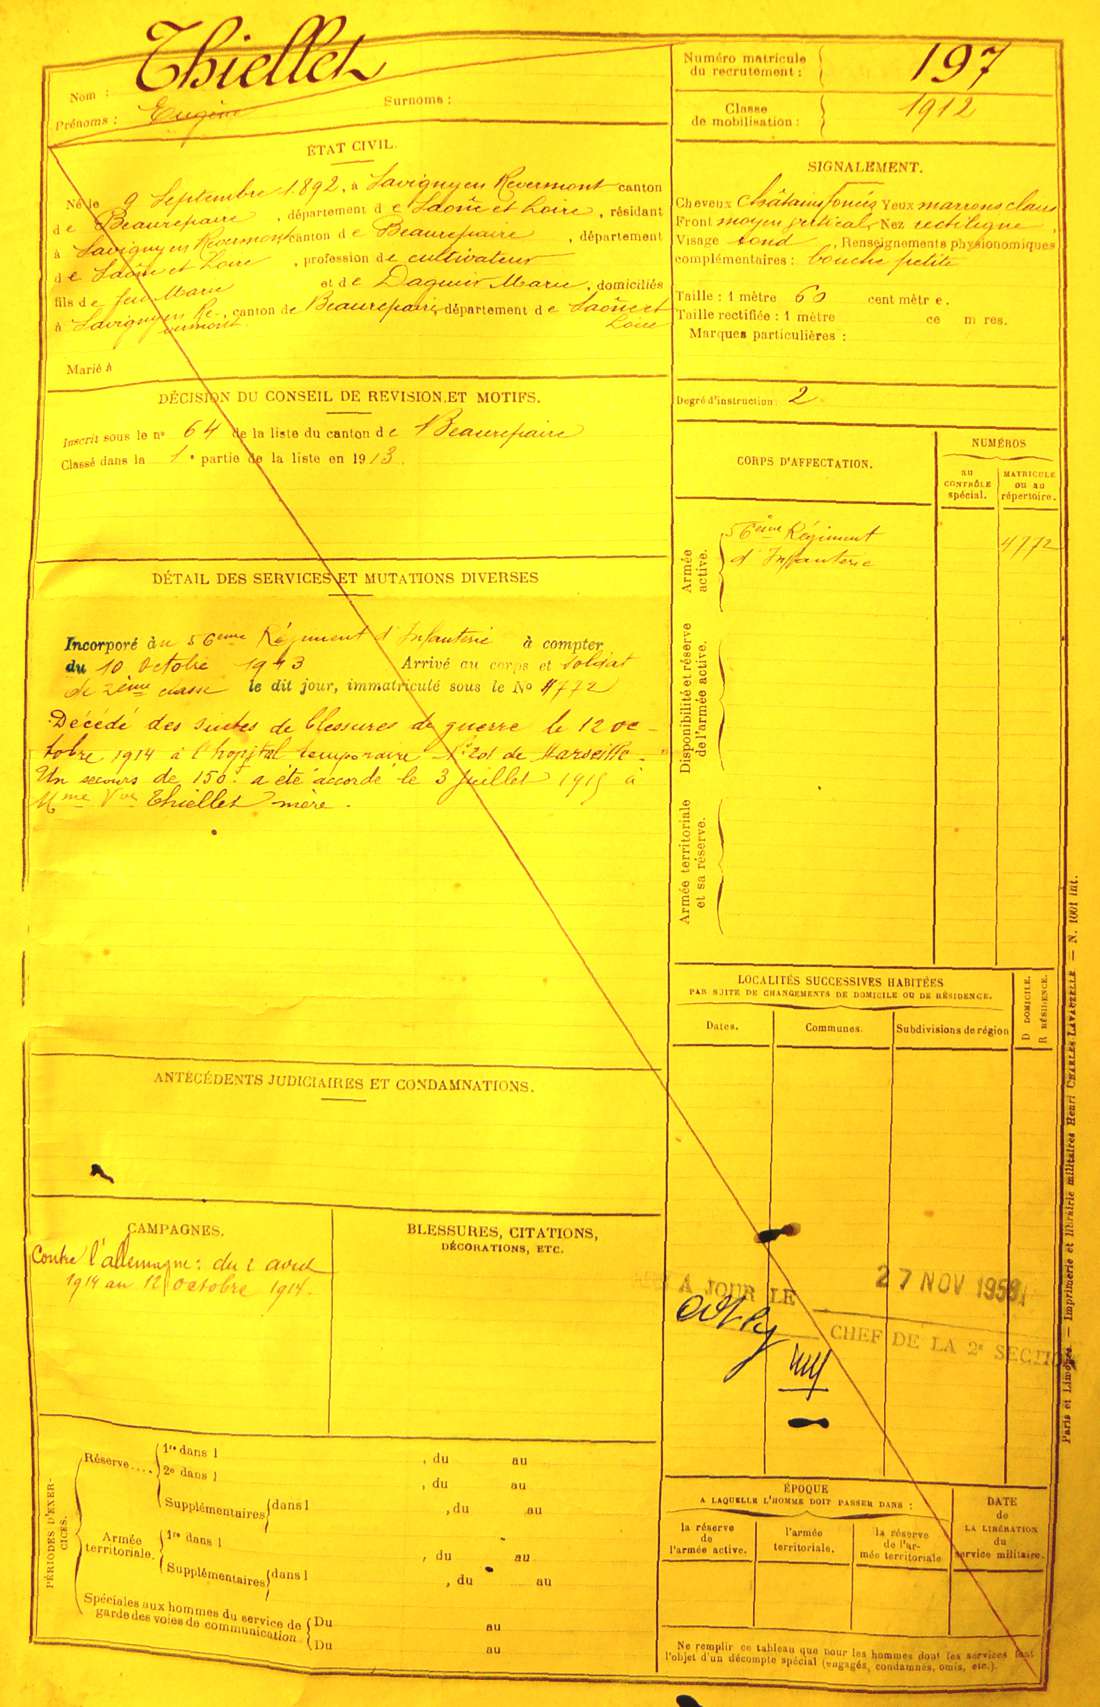 Nom : Thiellet
Prénoms : Eugène Surnoms :
Numéro matricule
du recrutement : 197
Classe
de mobilisation : 1912
ÉTAT CIVIL.
Né le 9 Septembre 1892, à Savigny en Revermont canton
de Beaurepaire, département de Saône et Loire, résidant
à Savigny en Revermont canton de Beaurepaire, département
de Saône et Loire, profession de cultivateur
fils de feu Marie et de Daguin Marie, domiciliés
à Savigny en Re-
vermont, canton de Beaurepaire, département de Saône et
Loire
Marié à
SIGNALEMENT.
Cheveux châtains foncés Yeux marrons clairs
Front moyen vertical, Nez rectiligne,
Visage rond, Renseignements physionomiques
complémentaires : bouche petite
Taille : 1 mètre 60 centimètre.
Taille rectifiée : 1 mètre ce m res.
Marques particulières :
Degré d'instruction : 2
DÉCISION DU CONSEIL DE REVISION ET MOTIFS.
Inscrit sous le nº 64 de la liste du canton de Beaurepaire
Classé dans la 1e partie de la liste en 1913.
CORPS D'AFFECTATION.
NUMÉROS
AU
CONTRÔLE
spécial.
MATRICULE
OU AU
répertoire.
Armée
active.
56ème Régiment
d'Infanterie
4772
Disponibilité et réserve
de l'armée active.
Armée territoriale
et sa réserve.
DÉTAIL DES SERVICES ET MUTATIONS DIVERSES
Incorporé au 56ème Régiment d'Infanterie à compter
du 10 octobre 1913 Arrivé au corps et soldat
de 2ème classe le dit jour, immatriculé sous le No 4772
Décédé des suites de blessures de guerre le 12 oc-
tobre 1914 à l'hopital temporaire Nº 201 de Marseille.
Un secours de 150f a été accordé le 3 Juillet 1915 à
Mme Vve Thiellet mère.
LOCALITÉS SUCCESSIVES HABITÉES
PAR SUITE DE CHANGEMENTS DE DOMICILE OU DE RÉSIDENCE.
Dates.
Communes.
Subdivisions de région
D DOMICILE.
R RÉSIDENCE.
ANTÉCÉDENTS JUDICIAIRES ET CONDAMNATIONS.
CAMPAGNES.
Contre l'allemagne : du 2 août
1914 au 12 octobre 1914.
BLESSURES, CITATIONS,
DÉCORATIONS, ETC.
A JOUR LE 27 NOV 1959
CHEF DE LA 2e SECTION
PÉRIODES D'EXER-
CICES.
Réserve....
1re dans l , du au
2e dans l , du au
Supplémentaires dans l , du au
Armée
territoriale.
1re dans l , du au
Supplémentaires dans l , du au
Spéciales aux hommes du service de
garde des voies de communication.
Du au
Du au
ÉPOQUE
A LAQUELLE L'HOMME DOIT PASSER DANS :
la réserve
de
l'armée active.
l'armée
territoriale.
la réserve
de l'ar-
mée territoriale
DATE
de
LA LIBÉRATION
du
service militaire.
Ne remplir ce tableau que pour les hommes dont les services font
l'objet d'un décompte spécial (engagés, condamnés, omis, etc.).
Paris et Limoges. — Imprimerie et librairie militaires Henri CHARLES-LAVAUZELLE — N. 1001 int.